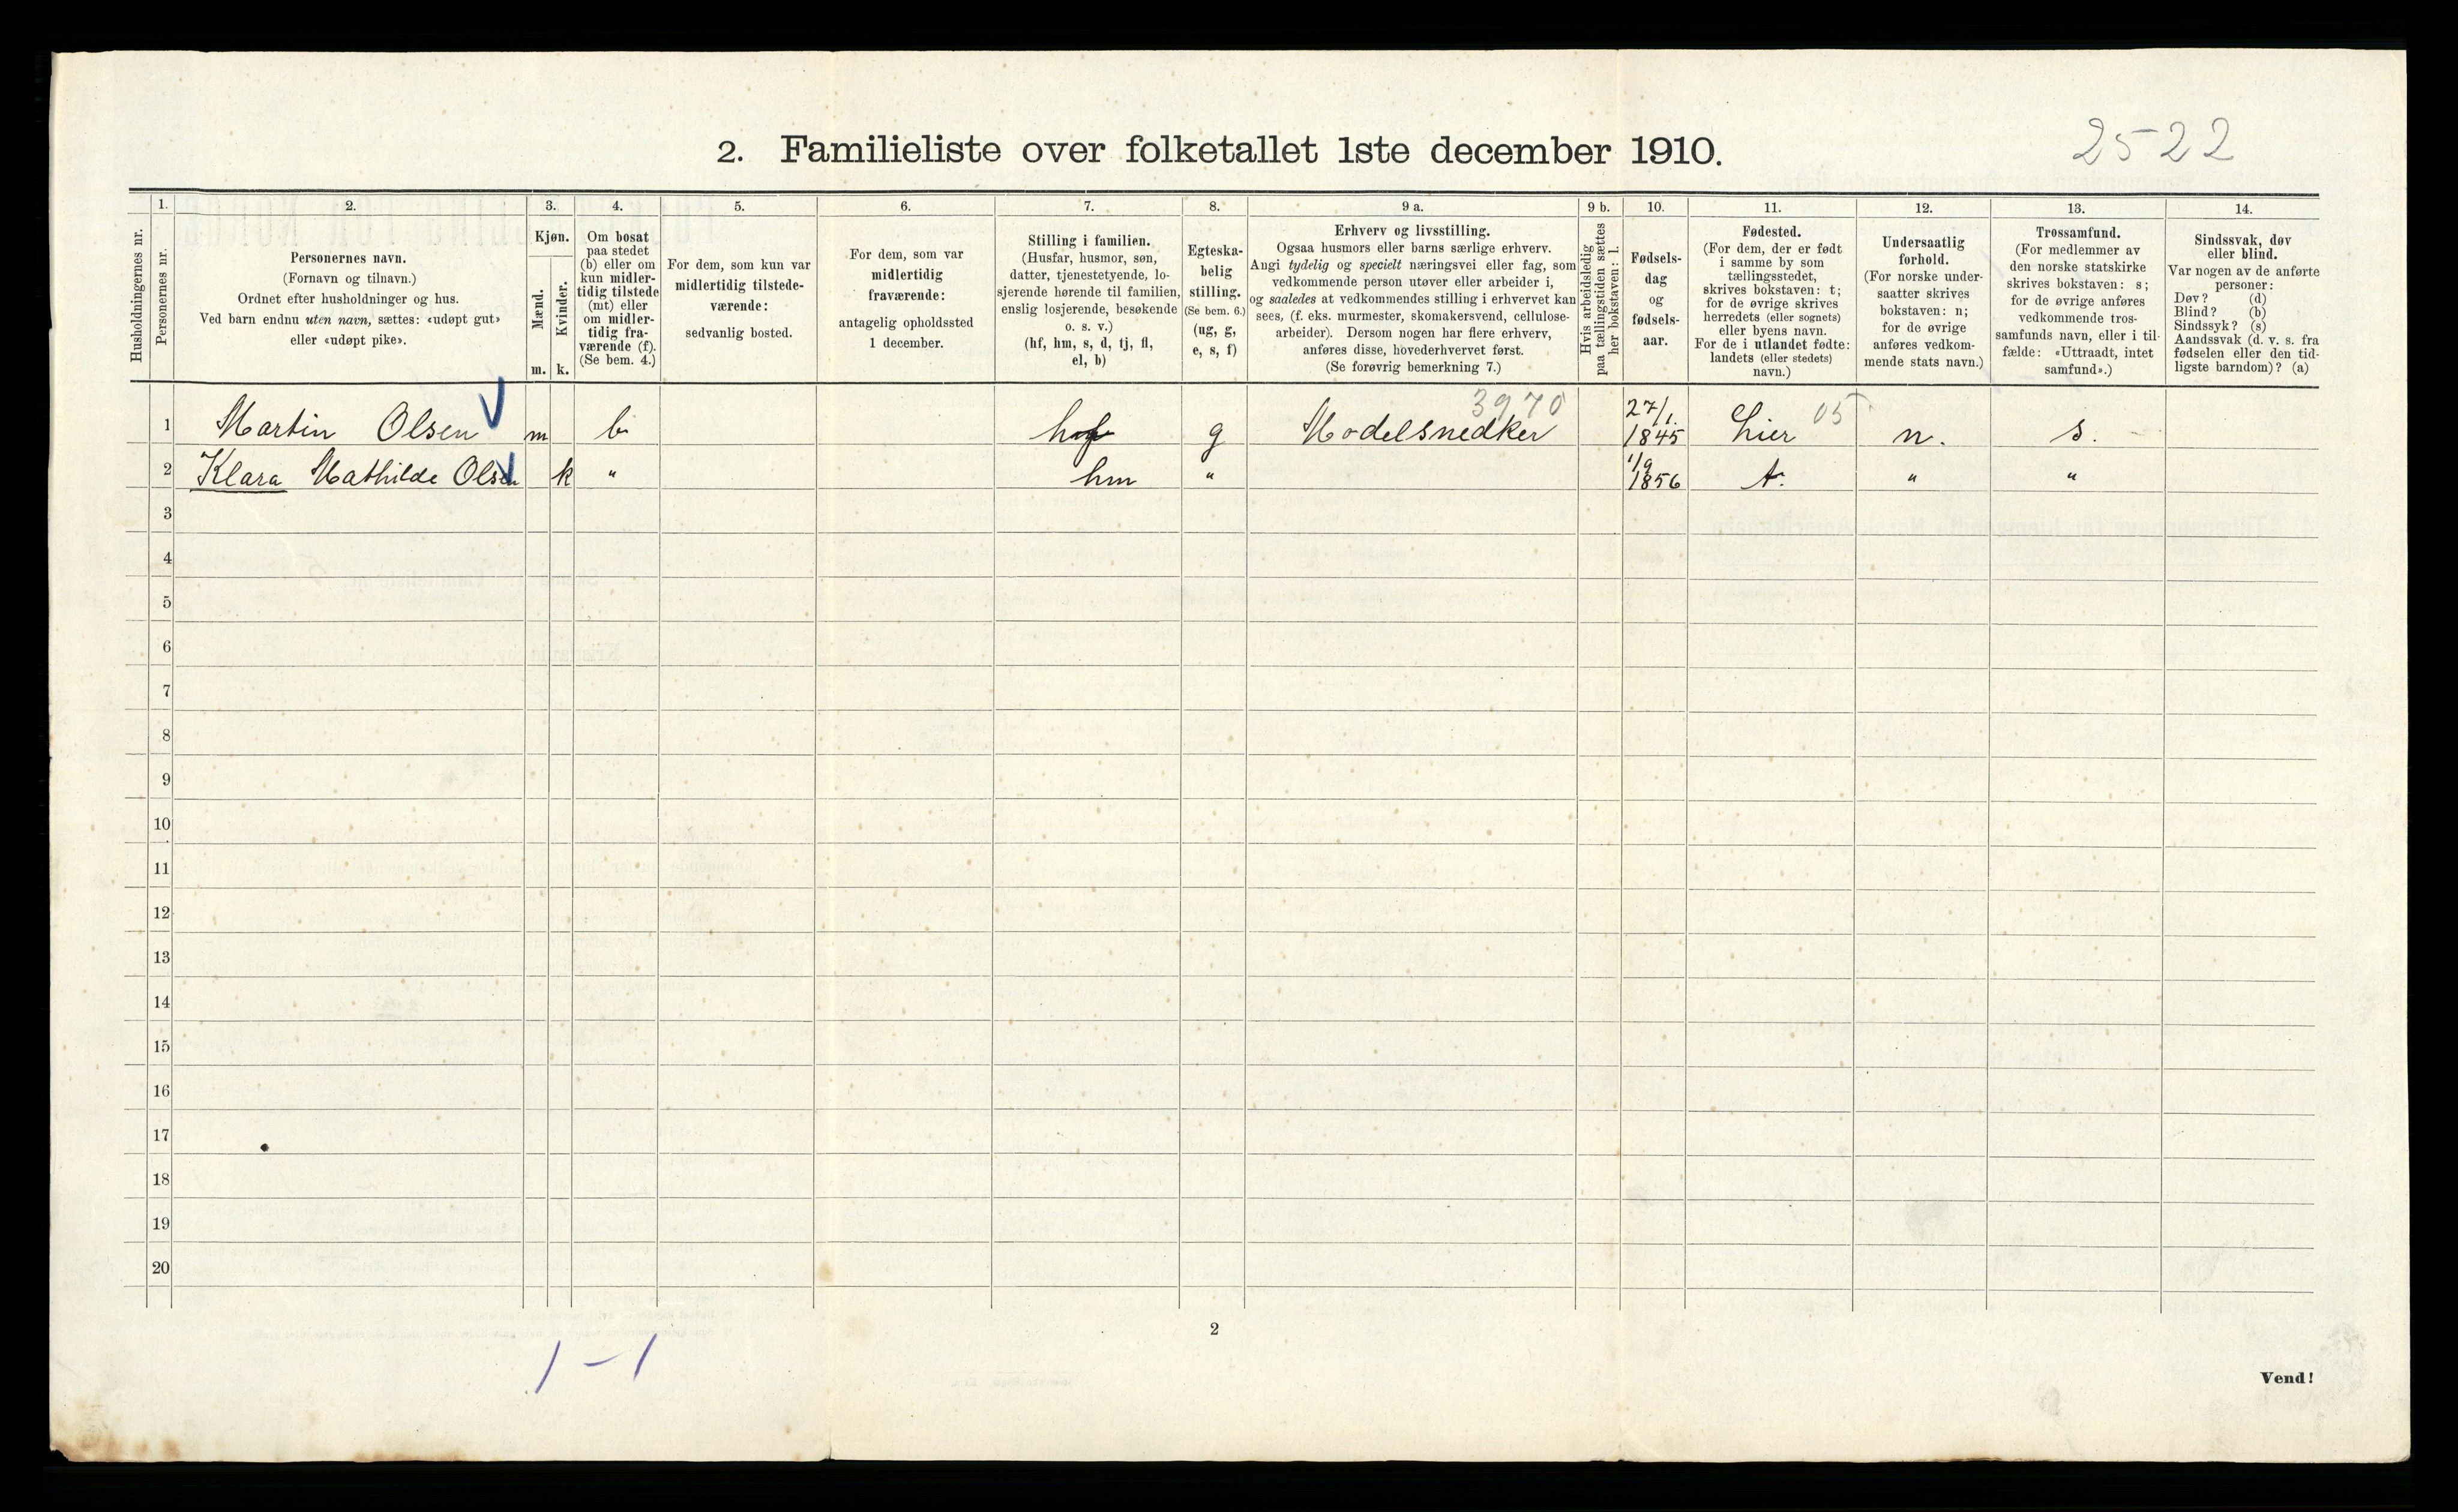 2. Familieliste over folketallet 1ste december 1910.
2522
Husholdningernes nr.
1.
Personernes nr.
2.
Personernes navn.
(Fornavn og tilnavn.)
Ordnet efter husholdninger og hus.
Ved barn endnu uten navn, sættes: «udøpt gut»
eller «udøpt pike».
3.
Kjøn.
Mænd.
Kvinder.
m. k.
4.
Om bosat
paa stedet
(b) eller om
kun midler-
tidig tilstede
(mt) eller
om midler-
tidig fra-
værende (f).
(Se bem. 4.)
5.
For dem, som kun var
midlertidig tilstede-
værende:
sedvanlig bosted.
6.
For dem, som var
midlertidig
fraværende:
antagelig opholdssted
1 december.
7.
Stilling i familien.
(Husfar, husmor, søn,
datter, tjenestetyende, lo-
sjerende hørende til familien,
enslig losjerende, besøkende
o. s. v.)
(hf, hm, s, d, tj, fl,
el, b)
8.
Egteska-
belig
stilling.
(Se bem. 6.)
(ug, g,
e, s, f)
9 a.
Erhverv og livsstilling.
Ogsaa husmors eller barns særlige erhverv.
Angi tydelig og specielt næringsvei eller fag, som
vedkommende person utøver eller arbeider i,
og saaledes at vedkommendes stilling i erhvervet kan
sees, (f. eks. murmester, skomakersvend, cellulose-
arbeider). Dersom nogen har flere erhverv,
anføres disse, hovederhvervet først.
(Se forøvrig bemerkning 7.)
9 b.
Hvis arbeidsledig
paa tællingstiden sættes
her bokstaven: l.
10.
Fødsels-
dag
og
fødsels-
aar.
11.
Fødested.
(For dem, der er født
i samme by som
tællingsstedet,
skrives bokstaven: t;
for de øvrige skrives
herredets (eller sognets)
eller byens navn.
For de i utlandet fødte:
landets (eller stedets)
navn.)
12.
Undersaatlig
forhold.
(For norske under-
saatter skrives
bokstaven: n;
for de øvrige
anføres vedkom-
mende stats navn.)
13.
Trossamfund.
(For medlemmer av
den norske statskirke
skrives bokstaven: s;
for de øvrige anføres
vedkommende tros-
samfunds navn, eller i til-
fælde: «Uttraadt, intet
samfund».)
14.
Sindssvak, døv
eller blind.
Var nogen av de anførte
personer:
Døv? (d)
Blind? (b)
Sindssyk? (s)
Aandssvak (d. v. s. fra
fødselen eller den tid-
ligste barndom)? (a)
1 Martin Olsen m b hf g Modelsnedker 3970 27/1. 1845 Lier 05 n. s.
2 Klara Mathilde Olsen k " hm " 1/9 1856 t. " "
3
4
5
6
7
8
9
10
11
12
13
14
15
16
17
18
19
20
2
1-1
Vend!